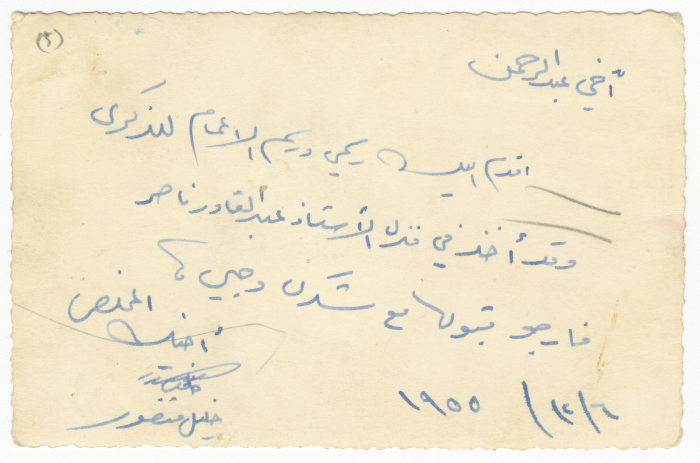 (٢)
أخي عبد الرحمن
اقدم اليك رسمي ورسم الاعمام للذكرى
وقد أخذ في منزل الأستاذ عبد القادر ناصر
فارجو قبولها مع شكري وحبي
المخلص
أخوك
خليل منصور
٦/١٢/ ١٩٥٥